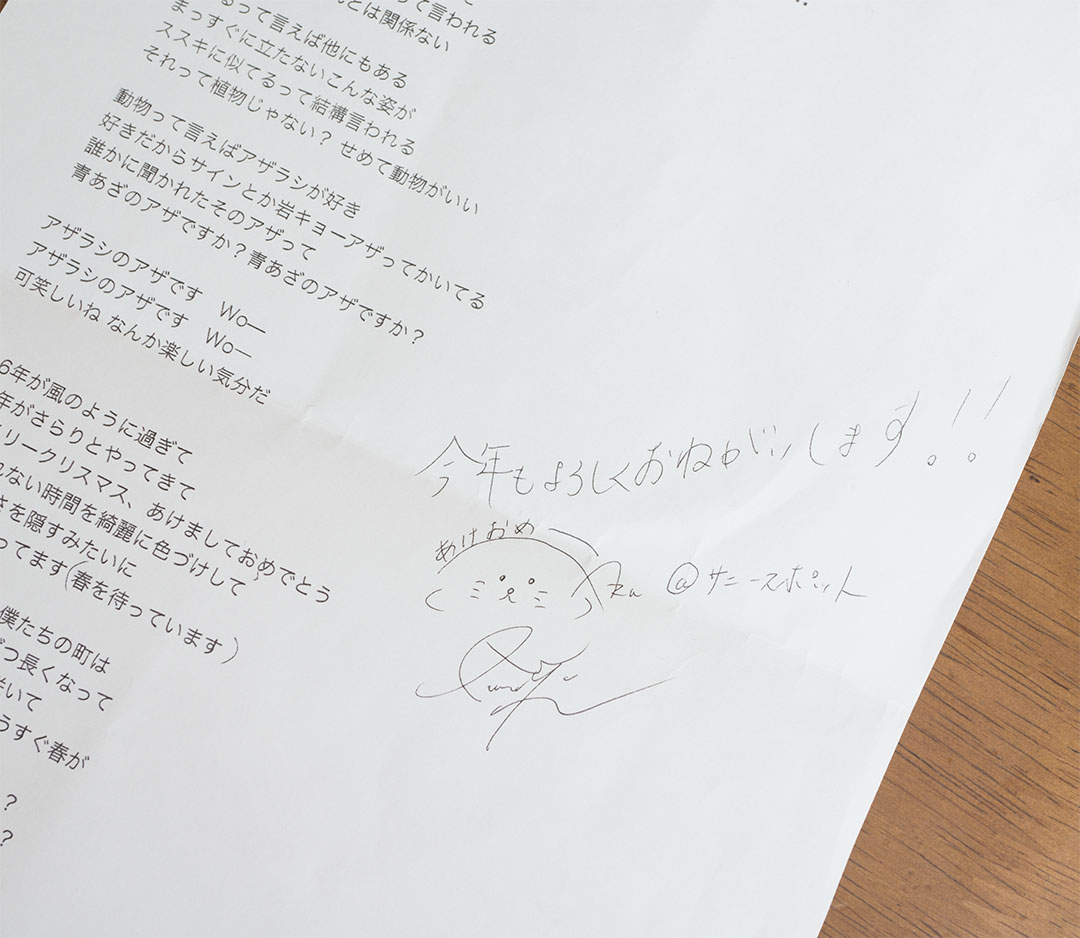 って言われる
とは関係ない
るって言えば他にもある
まっすぐに立たないこんな姿が
ススキに似てるって結構言われる
それって植物じゃない？ せめて動物がいい
動物って言えばアザラシが好き
好きだからサインとか岩キョーアザってかいてる
誰かに聞かれたそのアザって
青あざのアザですか？青あざのアザですか？
アザラシのアザです Wo―
アザラシのアザです Wo―
可笑しいね なんか楽しい気分だ
6年が風のように過ぎて
年がさらりとやってきて
リークリスマス、あけましておめでとう
れない時間を綺麗に色づけして
さを隠すみたいに
ってます(春を待っています)
僕たちの町は
づつ長くなって
いて
うすぐ春が
？
？
今年もよろしくおねがいします!!
あけおめー
@サニースポット